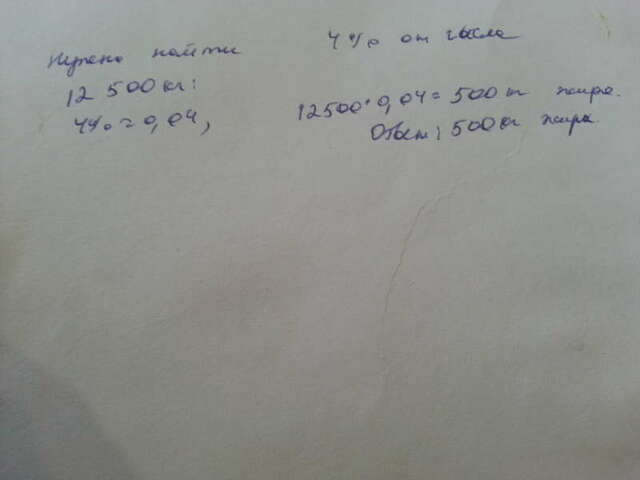 Нужно найти 4% от числа
12 500 кг:
4% = 0,04, 12500 · 0,04 = 500 кг жира.
Ответ: 500 кг жира